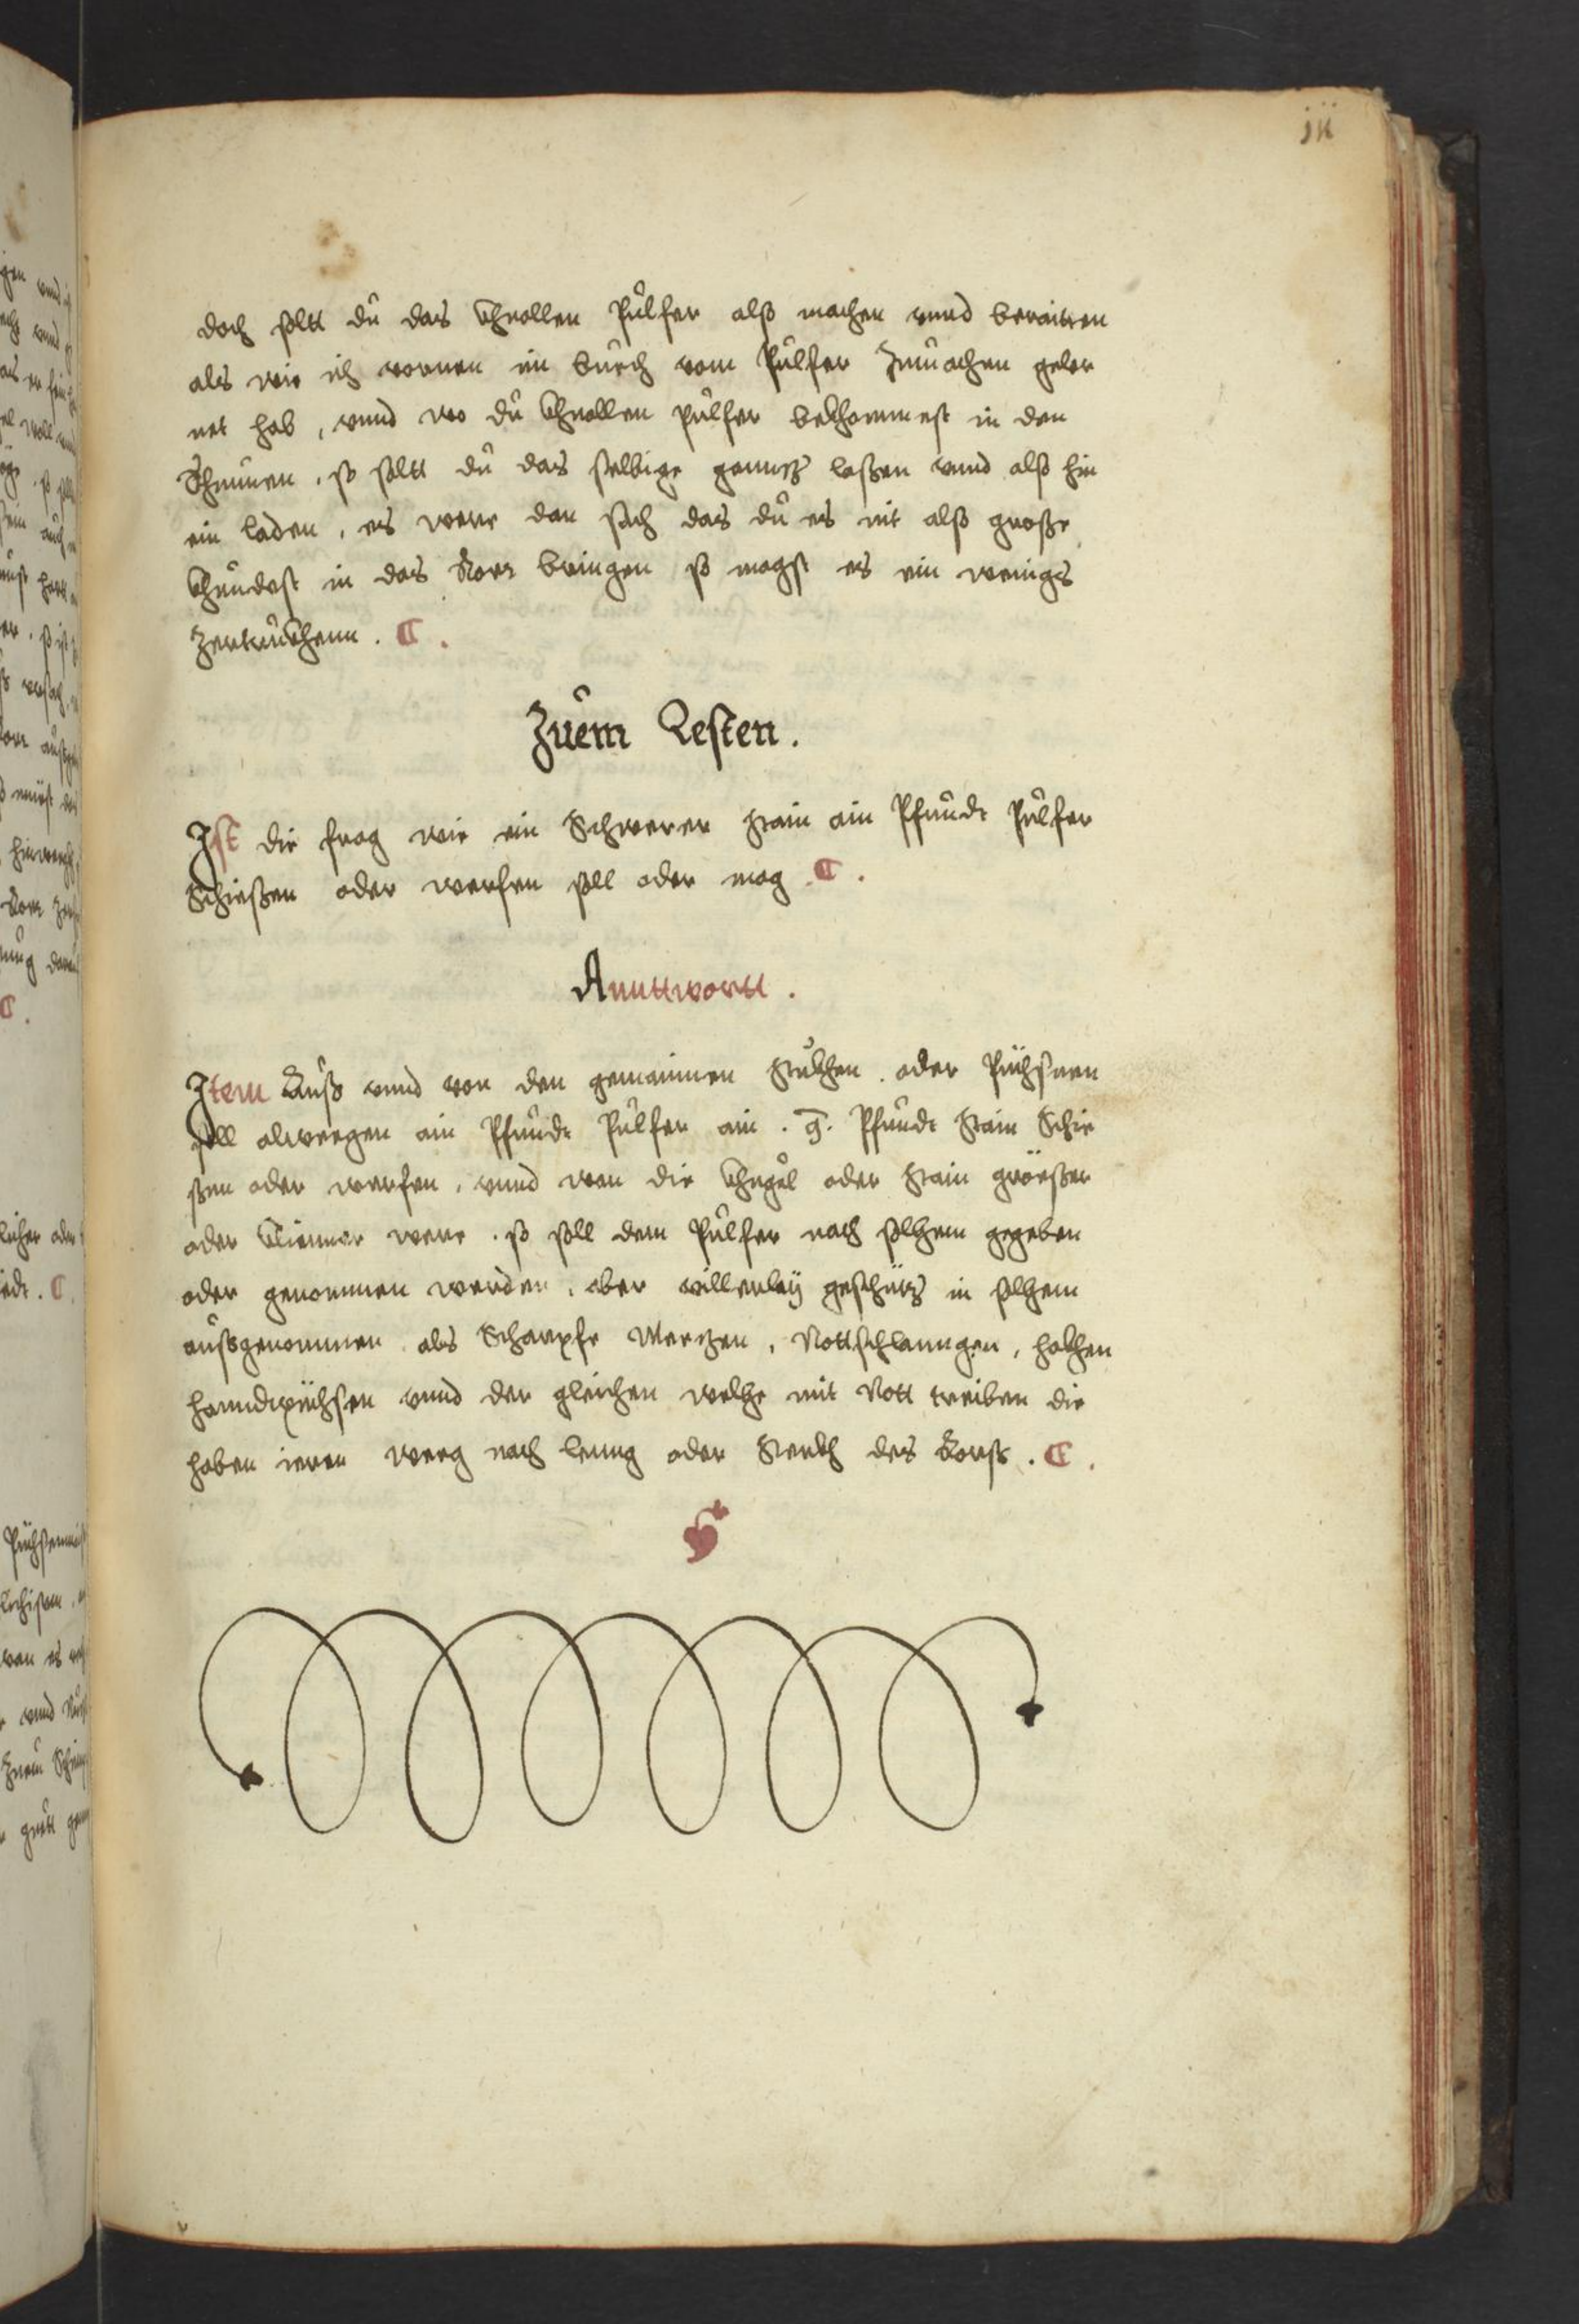 iii
doch soltt dů das khnollen půlfer also machen vnnd beraitten
als wie ich vornen im bůech vom Půlfer Zmůachen geler
net hab, vnnd wo dů khnollen půlfer bekhommest in den
so soltt dů das selbige gannz laßen vnnd also hin
ein laden, es were dan sach das dů es nit also große
khůndest in das Rorr bringen so magst es ein weniges
Zertrůckhenn. ¶.
Zůem Lesten.
Ist die frag wie ein Schweren stain ain Pfůndt Půlfer
Schießen oder werfen soll oder mag. ¶.
Annttwortt.
Item Auß vnnd von den gemainen stůkhen oder Püchsnen
soll alweegen ain Pfůndt Půlfer ain . . Pfůndt Stain Schie
ßen oder werfen, vnnd wan die khugel oder stain größer
oder khlienner were. so soll dem Půlfer nach solhem gegeben
oder genommen werden, aber geschütz in solhem
außgenommen als Scharpfe Mertzen, Nottschlanngen, hakhen
hanndtpüchsen vnnd der gleichen welhe mit Nott treiben die
haben ieren weeg nach leng oder sterkh des Rorß. ¶.